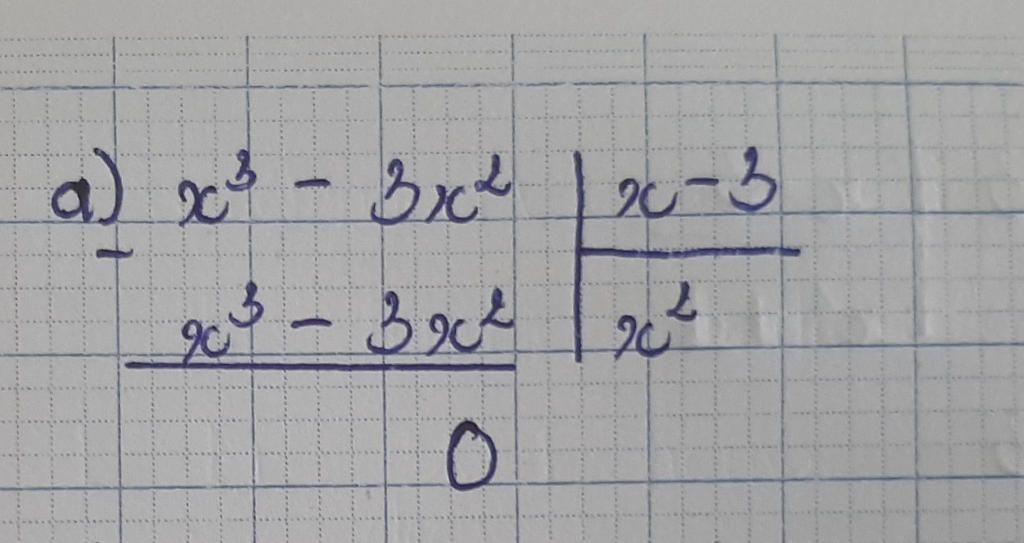 a) x³ - 3x² | x - 3
-
x³ - 3x² | x²
0